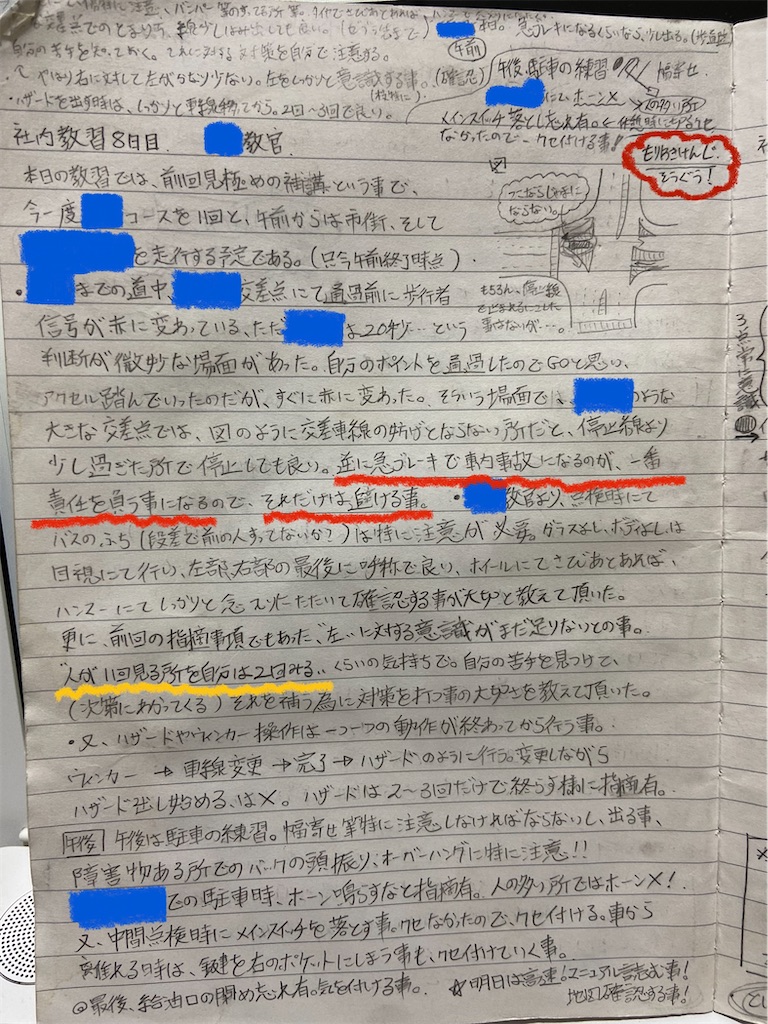 ・ハザードを出す時は、しっかりと車線移ってから。2回〜3回で良り。
自分の苦手を知っておく。それに対する対策を自分で注意する。
やはり右に対して左がかなり少ない。左をしっかと意識する事。(確認)
(午前)
急ブレーキになるくらいなら、少し出る。
午後駐車の練習 幅寄せ
にて、ホーン× 人の多い所
メインスイッチ落とし忘れ有。
なかったので、クセ付ける事!
もりおきけんじ
そうぐう!
図
ここならじゃまに
ならない。
もちろん、停止線
で止まれるにこした
事はないが…。
社内教習8日目. 教官.
本日の教習では、前回見極めの補講という事で、
今一度 コースを1回と、午前からは市街、そして
を走行する予定である。(只今午前終了時点).
・ までの道中、 交差点にて通過前に歩行者
信号が赤に変わっている、ただ は20秒…という
判断が微妙な場面があった。自分のポイントを通過したのでGOと思い、
アクセル踏んでいったのだが、すぐに赤に変わった。そういう場面では、 のような
大きな交差点では、図のように交差車線の妨げとならない所だと、停止線より
少し過ぎた所で停止しても良い。逆に急ブレーキで車内事故になるのが、一番
責任を負う事になるので、それだけは避ける事。 ・ 教官より、点検時にて
バスのふち(段差で前の人すってないか?)は特に注意が必要。ガラスよし、ボデーよしは
目視にて行い、左部、右部の最後に呼称で良り、ホイールにてさびあとあれば、
ハンマーにてしっかりと念入りにたたいて確認する事が大切と教えて頂いた。
更に、前回の指摘事項でもあった、"左"に対する意識がまだ足りないとの事。
"人が1回見る所を自分は2回みる"くらいの気持ちで。自分の苦手を見つけて、
(次第にわかってくる)それを補う為に対策を打つ事の大切さを教えて頂いた。
・又、ハザードやウィンカー操作は一つ一つの動作が終わってから行う事。
ウィンカー→車線変更→完了→ハザードのように行う。変更しながら
ハザード出し始める、は×。ハザードは2〜3回だけで終らす様に指摘有。
午後 午後は駐車の練習。幅寄せ等特に注意しなければならないし、出る事、
障害物ある所でのバックの頭振り、オーバーハングに特に注意!!
での駐車時、ホーン鳴らすなと指摘有。人の多い所ではホーン×!
又、中間点検時にメインスイッチを落とす事。クセなかったので、クセ付ける。車から
離れる時は、鍵を右のポケットにしまう事も、クセ付けていく事。
◎最後、給油口の閉め忘れ有。気を付ける事。 ☆明日は高速!マニュアル読む事!
地図確認する事!
3点常に意識